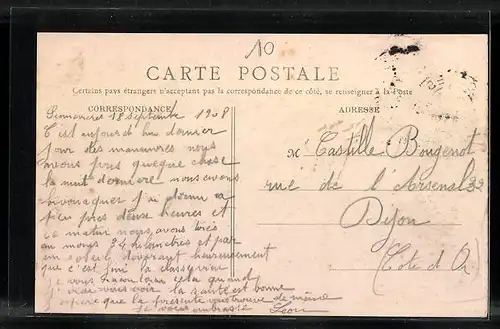 10
CARTE POSTALE
Certains pays étrangers n'acceptant pas la correspondance de ce côté, se renseigner à la Poste
CORRESPONDANCE
ADRESSE
18 septembre 1908
C'est aujourd'hui dernier
jour des manœuvres nous
avons pris quelque chose
la nuit dernière nous avons
bivouaquer j'ai dormi a
peu pres deux heures et
ce matin nous avons
au moins 34 kilomètres et par
un soleil heureusement
que c'est fini la
je vous cela quand
j'irai vous voir la santé est bonne
j'espère que la présente vous trouve de même
je vous embrasse Leon
M Castille Bougenot
rue de l'Arsenal 32
Dijon
(Cote d Or)